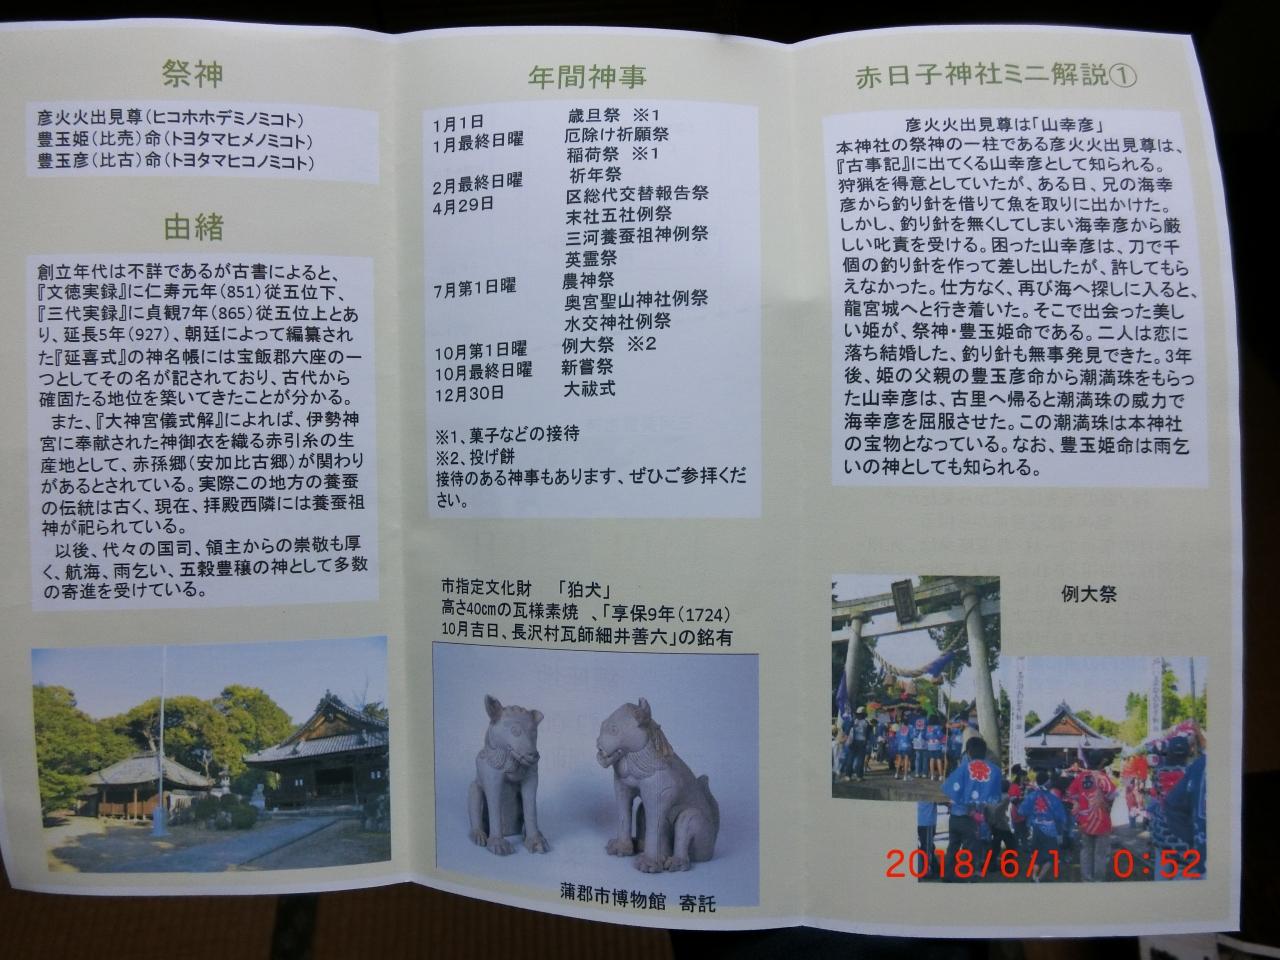 祭神
彦火火出見尊(ヒコホホデミノミコト)
豊玉姫(比売)命(トヨタマヒメノミコト)
豊玉彦(比古)命(トヨタマヒコノミコト)
由緒
創立年代は不詳であるが古書によると、
『文徳実録』に仁寿元年(851)従五位下、
『三代実録』に貞観7年(865)従五位上とあ
り、延長5年(927)、朝廷によって編纂され
た『延喜式』の神名帳には宝飯郡六座の一
つとしてその名が記されており、古代から
確固たる地位を築いてきたことが分かる。
また、『大神宮儀式解』によれば、伊勢神
宮に奉献された神御衣を織る赤引糸の生
産地として、赤孫郷(安加比古郷)が関わり
があるとされている。実際この地方の養蚕
の伝統は古く、現在、拝殿西隣には養蚕祖
神が祀られている。
以後、代々の国司、領主からの崇敬も厚
く、航海、雨乞い、五穀豊穣の神として多数
の寄進を受けている。
年間神事
1月1日 歳旦祭 ※1
1月最終日曜 厄除け祈願祭
稲荷祭 ※1
2月最終日曜 祈年祭
4月29日 区総代交替報告祭
末社五社例祭
三河養蚕祖神例祭
英霊祭
7月第1日曜 農神祭
奥宮聖山神社例祭
水交神社例祭
10月第1日曜 例大祭 ※2
10月最終日曜 新嘗祭
12月30日 大祓式
※1、菓子などの接待
※2、投げ餅
接待のある神事もあります、ぜひご参拝くだ
さい。
市指定文化財 「狛犬」
高さ40cmの瓦様素焼 、「享保9年(1724)
10月吉日、長沢村瓦師細井善六」の銘有
蒲郡市博物館 寄託
赤日子神社ミニ解説①
彦火火出見尊は「山幸彦」
本神社の祭神の一柱である彦火火出見尊は、
『古事記』に出てくる山幸彦として知られる。
狩猟を得意としていたが、ある日、兄の海幸
彦から釣り針を借りて魚を取りに出かけた。
しかし、釣り針を無くしてしまい海幸彦から厳
しい叱責を受ける。困った山幸彦は、刀で千
個の釣り針を作って差し出したが、許してもら
えなかった。仕方なく、再び海へ探しに入ると、
龍宮城へと行き着いた。そこで出会った美し
い姫が、祭神・豊玉姫命である。二人は恋に
落ち結婚した、釣り針も無事発見できた。3年
後、姫の父親の豊玉彦命から潮満珠をもらっ
た山幸彦は、古里へ帰ると潮満珠の威力で
海幸彦を屈服させた。この潮満珠は本神社
の宝物となっている。なお、豊玉姫命は雨乞
いの神としても知られる。
例大祭
祭
2018/6/1 0:52